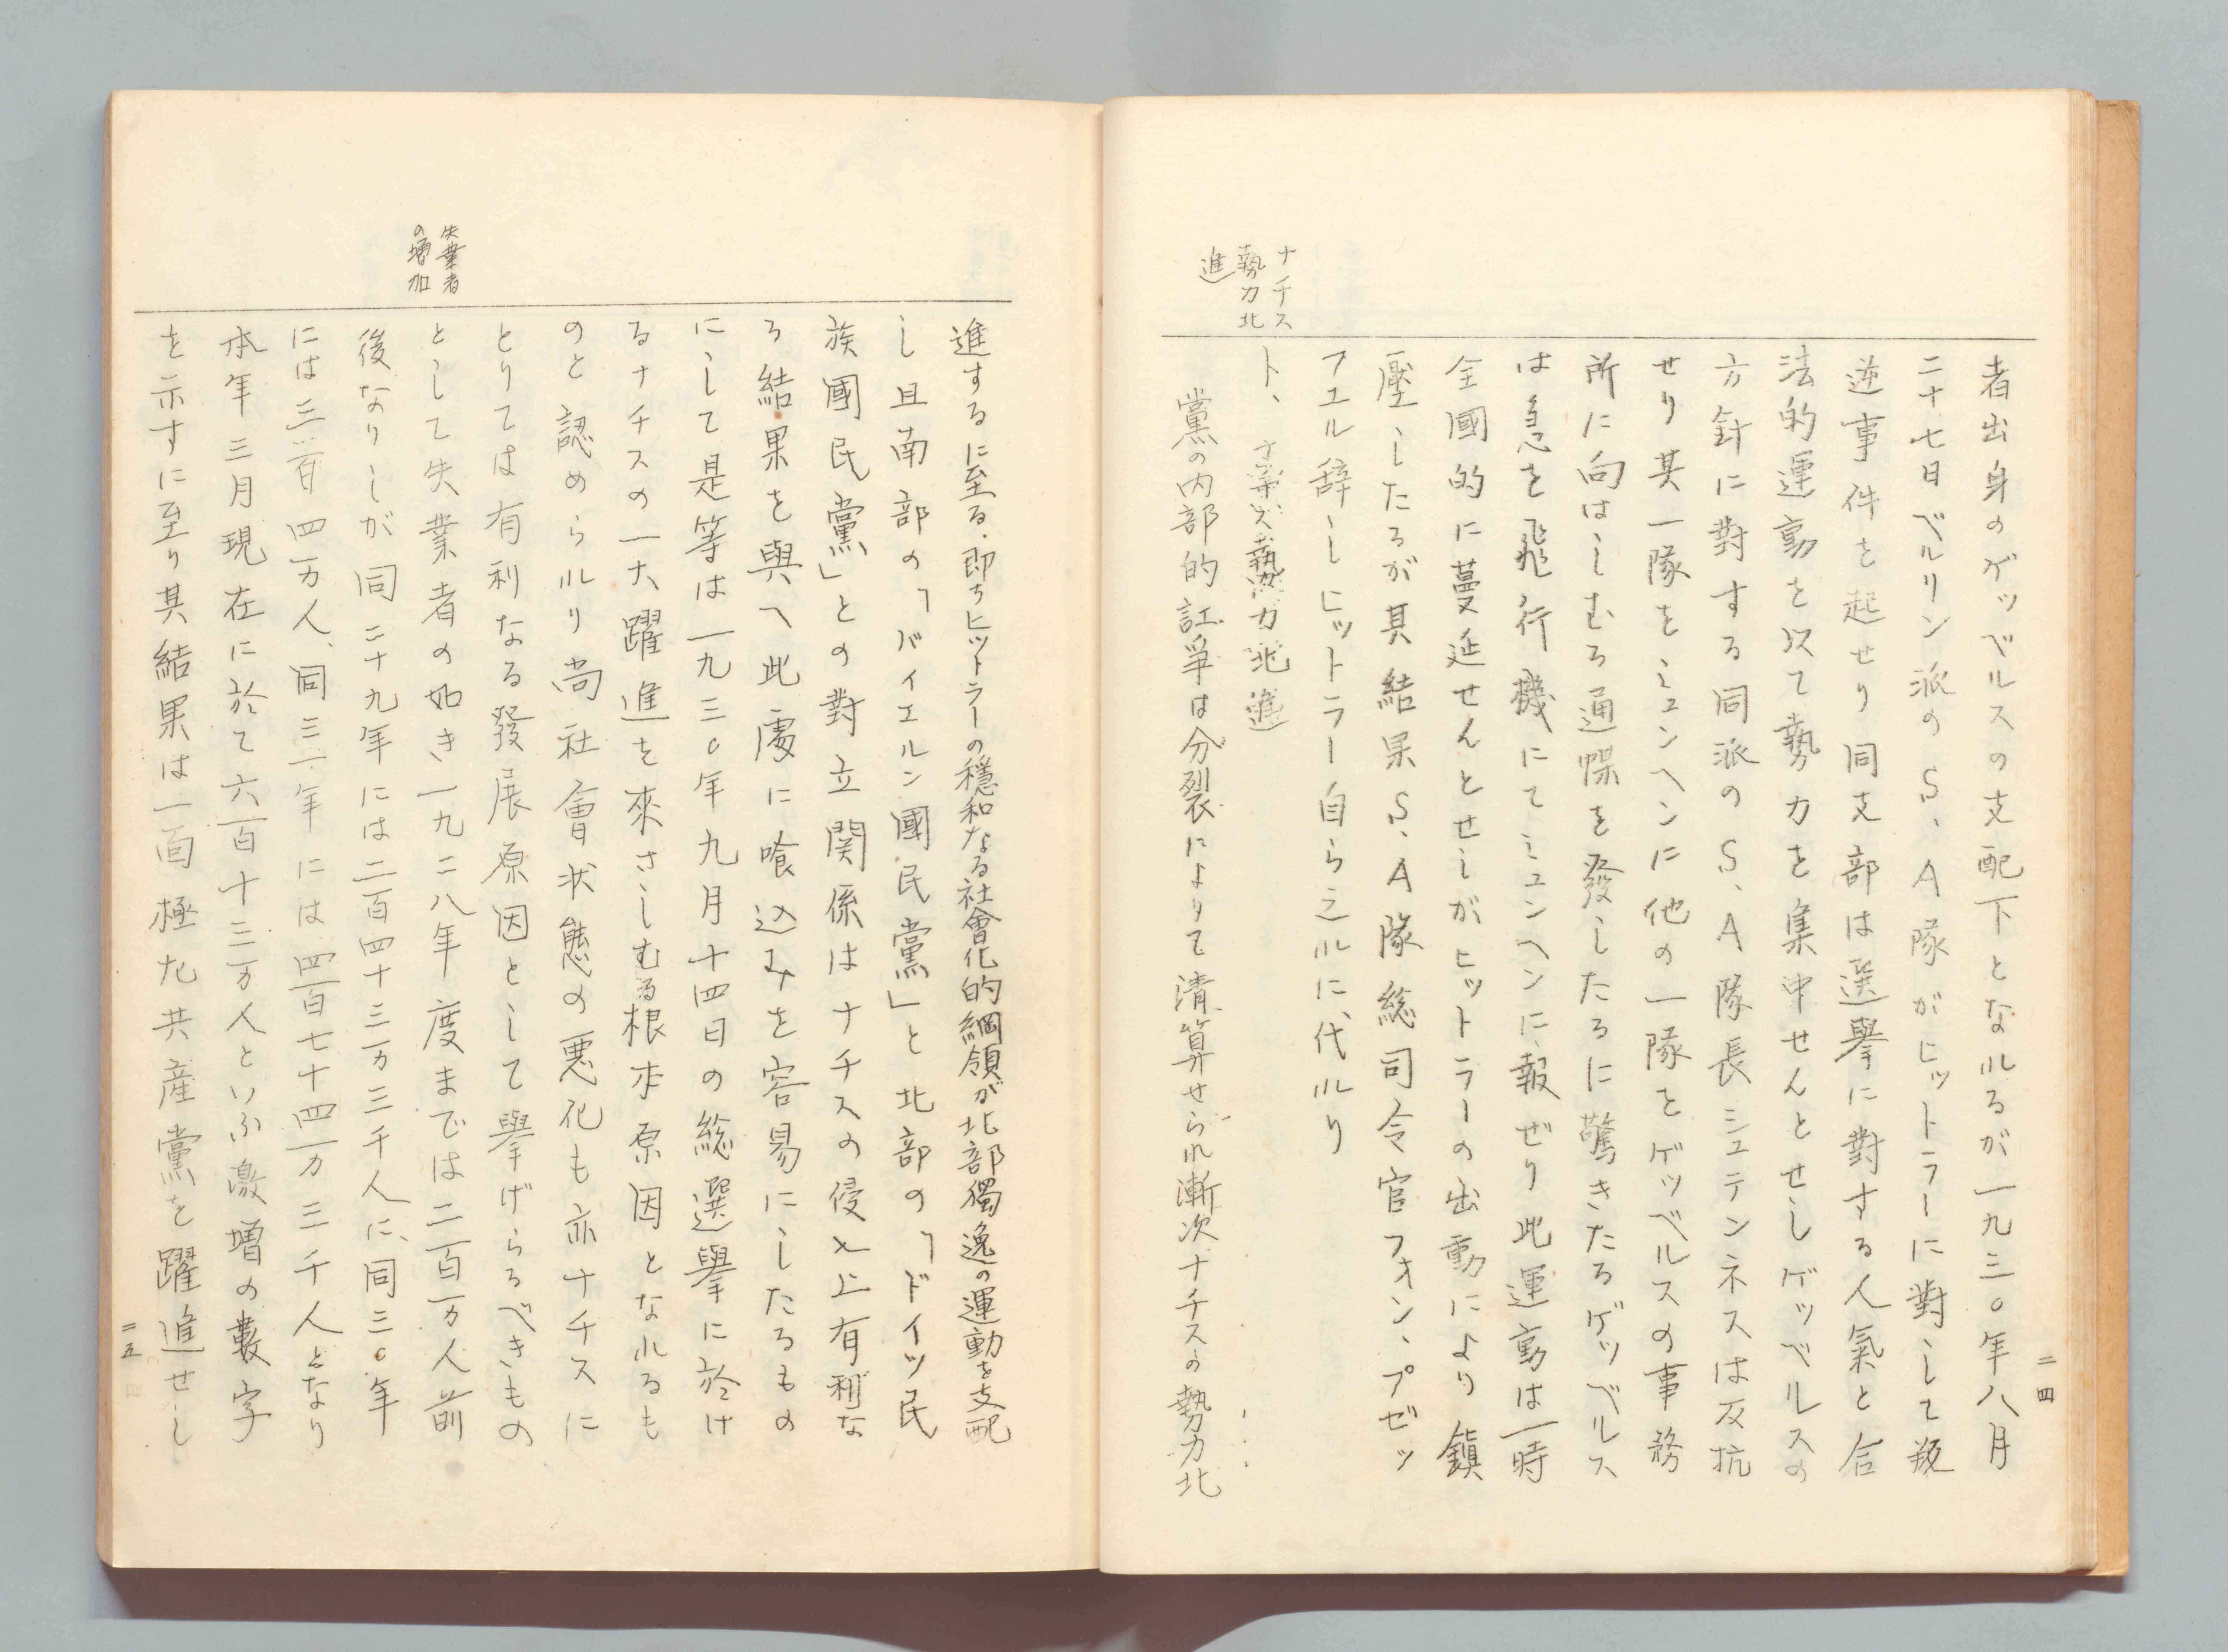 二四
ナチス
勢力北
進
者出身のゲッベルスの支配下となれるが一九三〇年八月
二十七日ベルリン派のS、A隊がヒットラーに對して叛
逆事件を起せり同支部は選擧に對する人氣と合
法的運動を以て勢力を集中せんとせしゲッベルスの
方針に對する同派のS、A隊長シュテンネスは反抗
せり其一隊をミュンヘンに他の一隊をゲッベルスの事務
所に向はしむる通牒を發したるに驚きたるゲッベルス
は急を飛行機にてミュンヘンに報ぜり此運動は一時
全國的に蔓延せんとせしがヒットラーの出動により鎮
壓したるが其結果S、A隊総司令官フォン、プゼッ
フェル辞しヒットラー自ら之れに代れり
ト、ナチス勢力北進
黨の内部的訌爭は分裂によりて清算せられ漸次ナチスの勢力北
失業者
の増加
進するに至る、即ちヒットラーの穩和なる社會化的綱領が北部獨逸の運動を支配
し且南部の「バイエルン國民黨」と北部の「ドイツ民
族國民黨」との對立関係はナチスの侵入上有利な
る結果を與へ此處に喰込みを容易にしたるもの
にして是等は一九三〇年九月十四日の総選擧に於け
るナチスの一大躍進を來さしむる根本原因となれるも
のと認めらルり尚社會状態の悪化も亦ナチスに
とりては有利なる發展原因として擧げらるべきもの
として失業者の如き一九二八年度までは二百万人前
後なりしが同二十九年には二百四十三万三千人に、同三〇年
には三百四万人、同三一年には四百七十四万三千人となり
本年三月現在に於て六百十三万人といふ激増の數字
を示すに至り其結果は一面極左共産黨を躍進せし
二五